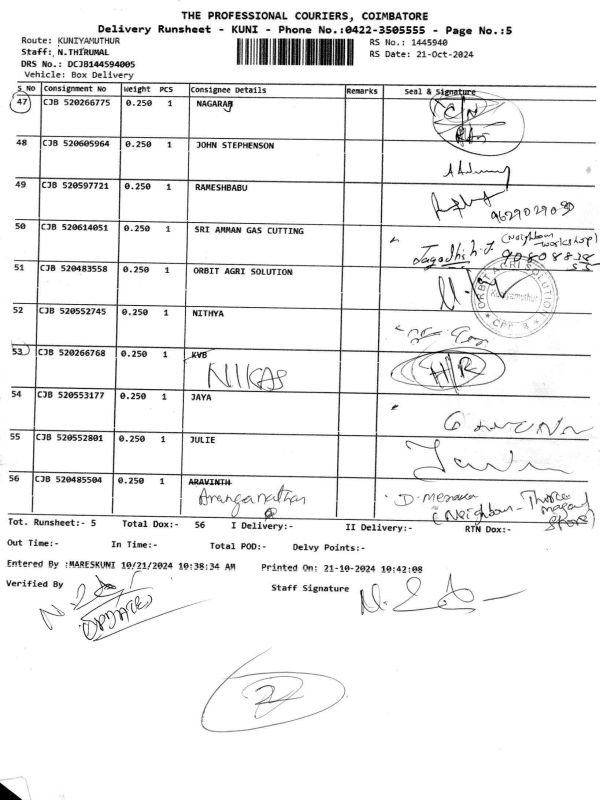 THE PROFESSIONAL COURIERS, COIMBATORE
Delivery Runsheet - KUNI - Phone No.:0422-3505555 - Page No.:5
Route: KUNIYAMUTHUR
RS No.: 1445940
Staff: N.THIRUMAL
RS Date: 21-Oct-2024
DRS No.: DCJB144594005
Vehicle: Box Delivery
S_No Consignment No Weight PCS Consignee Details Remarks Seal & Signature
47 CJB 520266775 0.250 1 NAGARAJ
48 CJB 520605964 0.250 1 JOHN STEPHENSON
49 CJB 520597721 0.250 1 RAMESHBABU
50 CJB 520614051 0.250 1 SRI AMMAN GAS CUTTING
(Neighbour workshop)
Jagadhish.J
51 CJB 520483558 0.250 1 ORBIT AGRI SOLUTION
ORBIT AGRI SOLUTION
Kuniyamuthur
52 CJB 520552745 0.250 1 NITHYA
53 CJB 520266768 0.250 1 KVB
NIKAS
H/R
54 CJB 520553177 0.250 1 JAYA
55 CJB 520552801 0.250 1 JULIE
56 CJB 520485504 0.250 1 ARAVINTH
Aranganathan
D. Menaka
(Neighbour-
Tot. Runsheet:- 5 Total Dox:- 56 I Delivery:- II Delivery:- RTN Dox:-
Out Time:- In Time:- Total POD:- Delvy Points:-
Entered By :MARESKUNI 10/21/2024 10:38:34 AM Printed On: 21-10-2024 10:42:08
Verified By Staff Signature